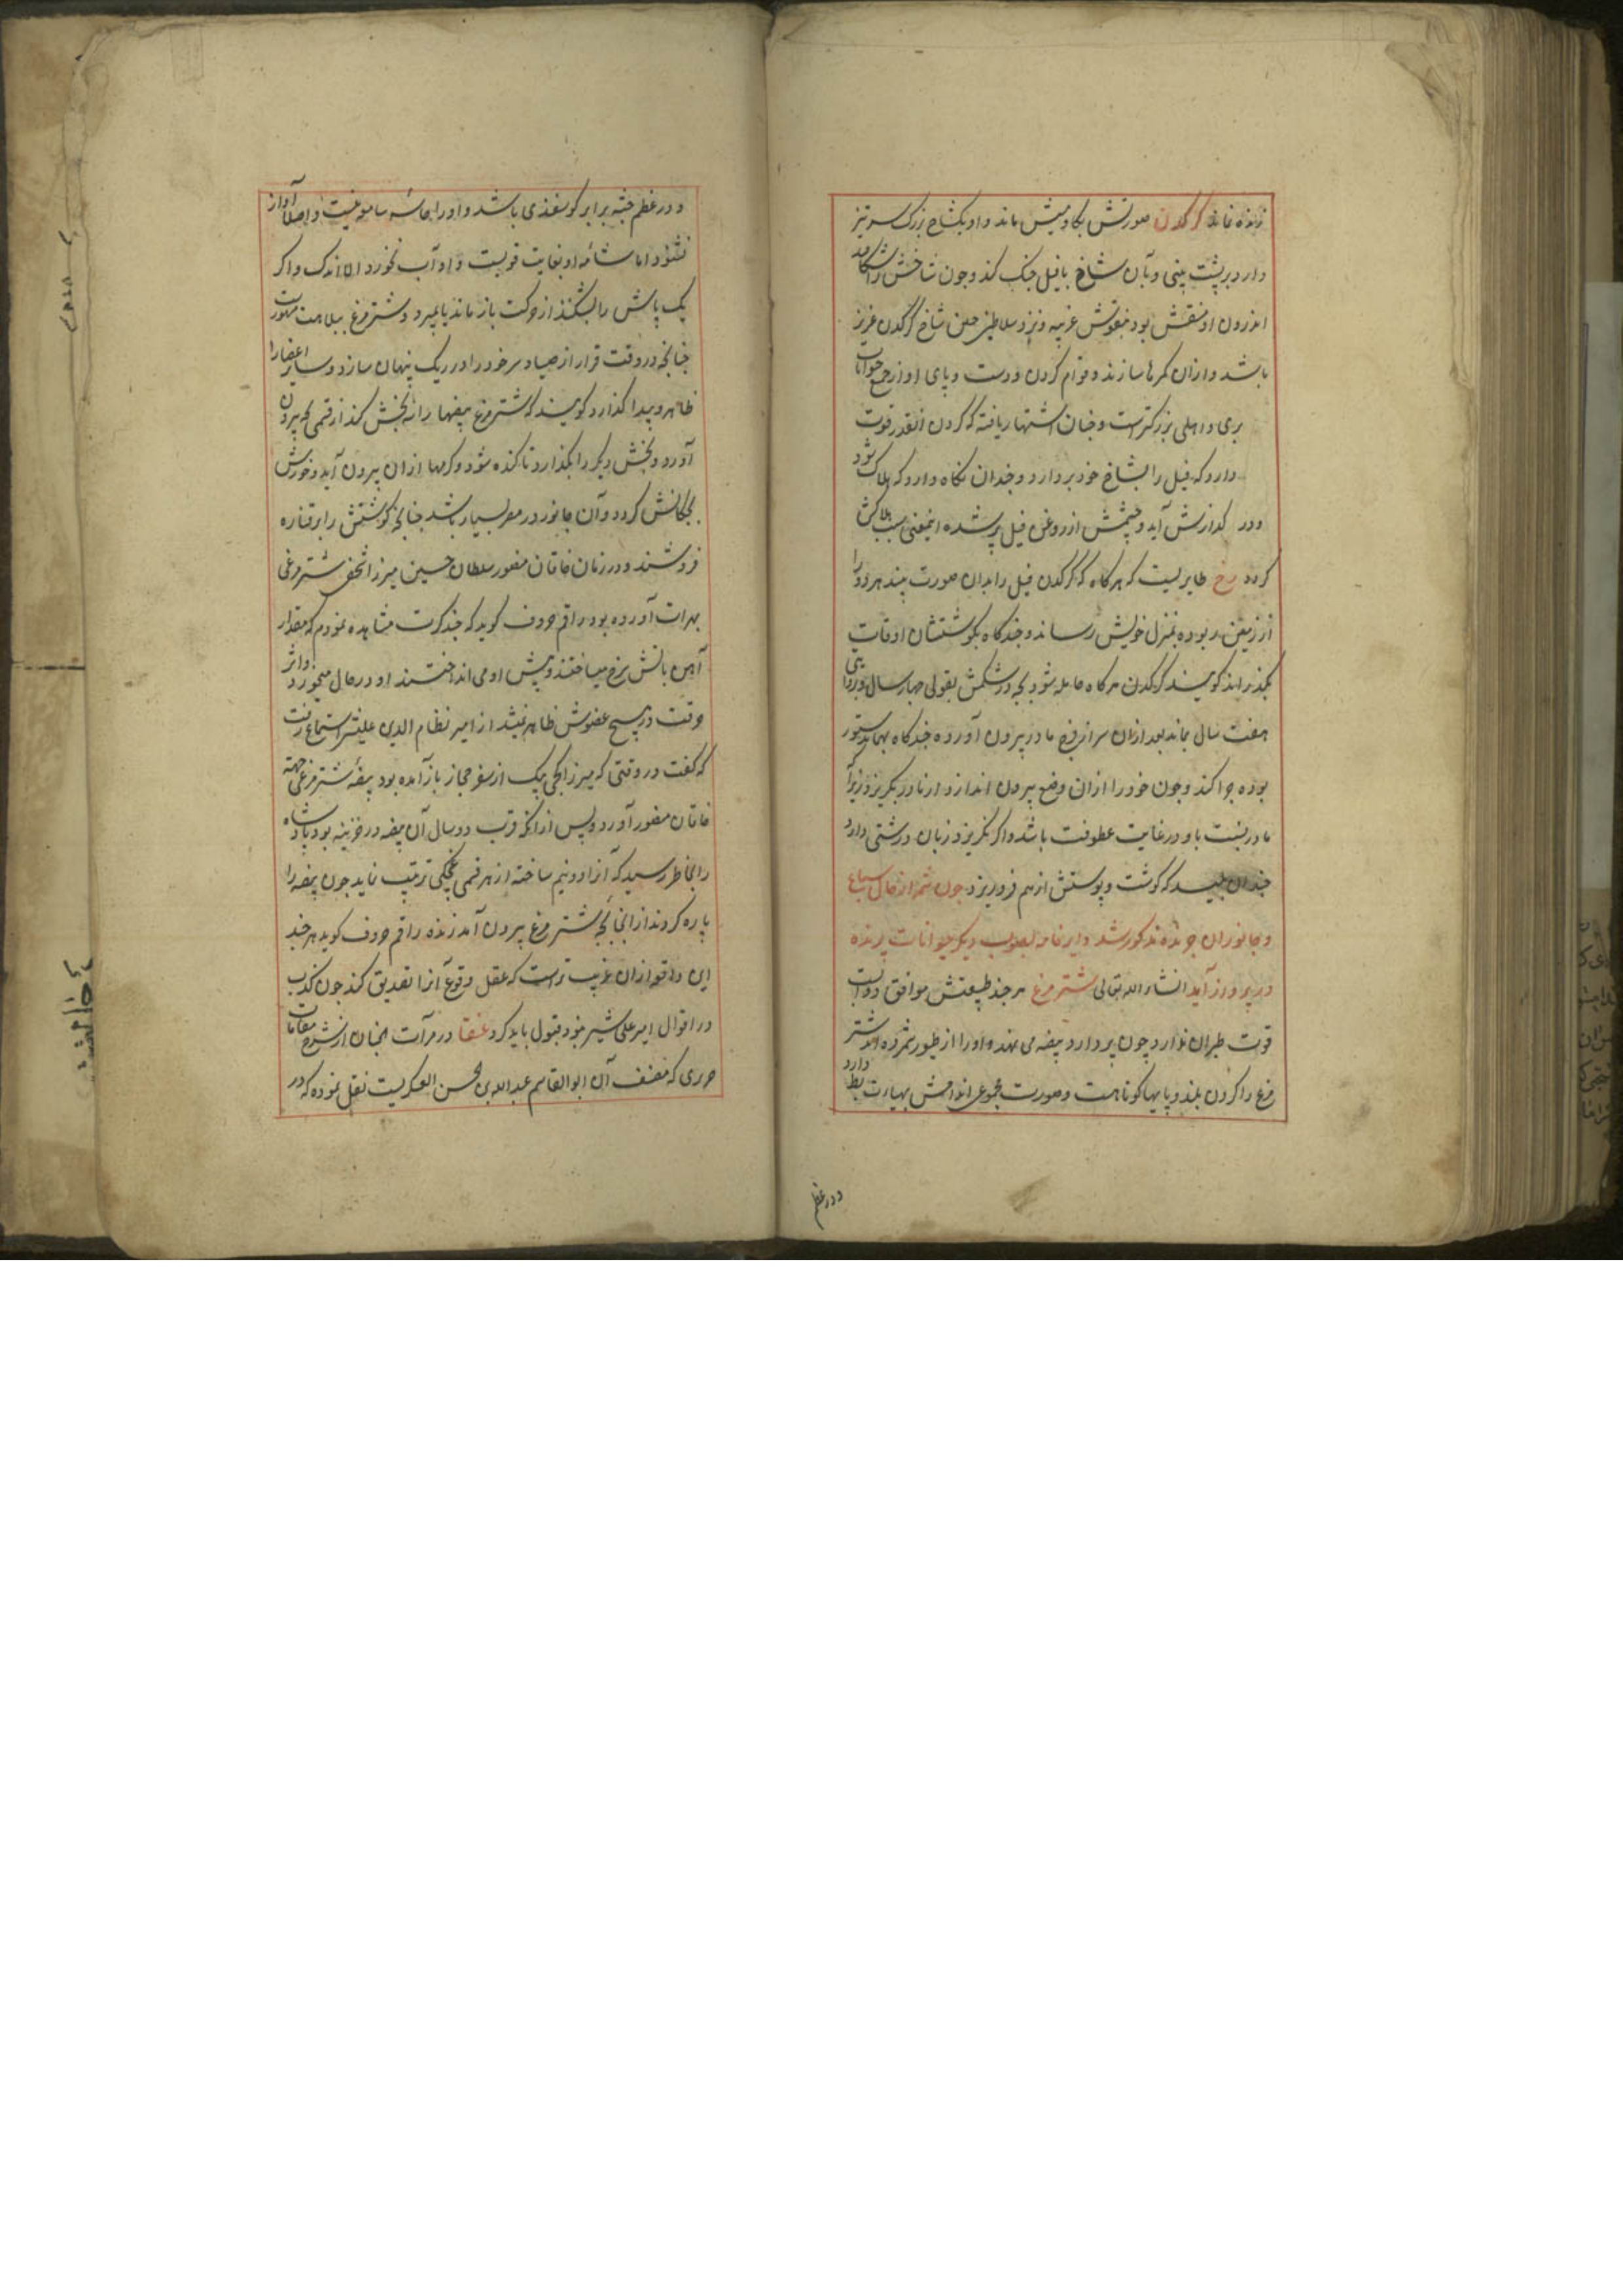 زنده نماند کرکدن صورتش بکاومیش ماند و او یکشاخ بزرک سرتیز
دارد بر پشت بینی و بآن شاخ با فیل جنک کند و چون شاخش را بشکافند
اندرون او منقش بود بنقوش غریبه و نزد سلاطین چین شاخ کرکدن عزیز
باشد و ازان کمرها سازند و قوام کردن و دست و پای او از جمیع حیوانات
بری و اهلی بزرکترست و چنان اشتهار یافته که کردن انقدر قوت
دارد که فیل را بشاخ خود بردارد و چندان نکاه دارد که هلاک شود
و در کدازش آید و چشمش از روغن فیل پر شده اینمعنی سبب هلاکش
کردد رخ طایریست که هرکاه که کرکدن فیل را بدان صورت بیند هر دو را
از زمین ربوده بمنزل خویش رساند و چندکاه بکوشتشان اوقات
بکذراند کویند کرکدن هرکاه حامله شود بچه در شکمش بقولی چهار سال و بروایتی
هفت سال بماند بعد ازان سر از فرج مادر بیرون آورده چندکاه بهمان دستور
بوده چرا کند و چون خود را ازان وضع بیرون اندازد از مادر بکریزد زیرا
مادر نسبت باو در غایت عطوفت باشد و اکر نکریزد زبان درشتی دارد
چندان بلیسد که کوشت و پوستش از هم فرو ریزد چون شمه از حال سباع
و جانوران چرنده مذکور شد و ایر خامه بصوب دیکر حیوانات پرنده
در پرواز آید انشاء الله تعالی شترمرغ هر چند طبیعتش موافق دوابست
قوت طیران ندارد چون پر دارد بیضه می نهد و او را از طیور شمرده اند شتر
مرغ را کردن بلند و پایها کوتاهست و صورت مجموعی اندامش بهیاءت بط دارد
و در عظم
و در عظم جثه برابر کوسفندی باشد و او را حاسه سامعه نیست و اصلا آواز
نشنود اما شامه او بغایت قویست و او آب نخورد الا اندک و اکر
یک پایش را بشکنند از حرکت باز ماند یا بمیرد و شترمرغ ببلاهت مشهورست
چنانچه در وقت فرار از صیاد سر خود را در ریک پنهان سازد و سایر اعضا را
ظاهر و پیدا کذارد کویند که شترمرغ بیضها را سه بخش کند از قسمی بچه بیرون
آورد و بخش دیکر را بکذارد تا کنده شود و کرمها ازان بیرون آید و خورش
بچکانش کردد و آن جانور در مصر بسیار باشد چنانچه کوشتش را بر قناره
فروشند و در زمان خاقان مغفور سلطان حسین میرزا شخصی شترمرغی
بهرات آورده بود راقم حروف کوید که چند کرت مشاهده نمودم که مقدار
آهن باتش سرخ میساختند و پیش او می انداختند او در حال میخورد و اثر
حرقت در هیچ عضوش ظاهر نمیشد از امیر نظام الدین علیشیر استماع رفت
که کفت در وقتی که میرزا کجی بیک از سفر حجاز باز آمده بود بیضه شترمرغی جهته
خاقان مغفور آورد و پس ازانکه قرب دو سال آن بیضه در خزینه بود پادشاه
را بخاطر رسید که آنرا دو نیم ساخته از هر قسمی غجکی ترتیب نماید چون بیضه را
پاره کردند از انجا بچه شترمرغ بیرون آمد زنده راقم حروف کوید هر چند
این واقعه ازان غریب ترست که عقل وقوع آنرا تصدیق کند چون کذب
در اقوال امیر علی شیر نبود قبول باید کرد عنقا در مرآت الجنان از شرح مقامات
حرری که مصنف آن ابو القاسم عبد الله بن محسن العسکریست نقل نموده که در